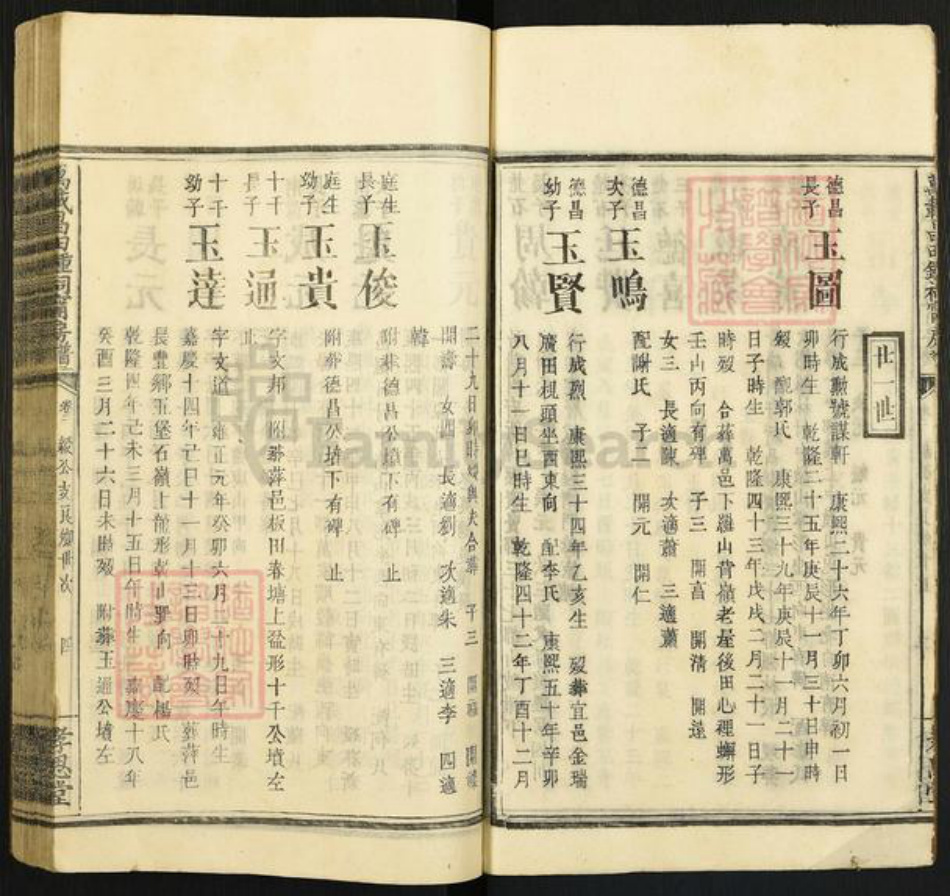 廿一世
德昌長子 玉圖
行成勲號謀軒 康熙二十六年丁卯六月初一日
卯時生 乾隆二十五年庚辰十一月三十日申時
歿 配郭氏 康熙三十九年庚辰十一月二十一
日子時生 乾隆四十三年戊戌二月二十一日子
時歿 合葬萬邑下羅山背嶺老屋後田心裡螄形
壬山丙向有碑 子三 開富 開清 開遠
女三 長適陳 次適蕭 三適蕭
德昌次子 玉鳴
配謝氏 子二 開元 開仁
德昌幼子 玉賢
行成烈 康熙三十四年乙亥生 歿葬宜邑金瑞
廣田梘頭坐酉東向 配李氏 康熙五十年辛卯
八月十一日巳時生 乾隆四十二年丁酉十二月
二十九日卯時歿與夫合葬 子三 開福 開
開壽 女四 長適劉 次適朱 三適李 四適
韓
庭生長子 玉俊
附葬德昌公墳下有碑 止
庭生幼子 玉貴
附葬德昌公墳下有碑 止
十千長子 玉通
字文邦 附葬萍邑板田春塘上盆形十千公墳左
止
十千幼子 玉達
字文道 雍正元年癸卯六月二十九日午時生
嘉慶十四年己巳十一月十三日卯時歿 葬萍邑
長豐鄉五堡石嶺上龍形乾山巽向 配楊氏
乾隆四年己未三月十五日午時生 嘉慶十八年
癸酉三月二十六日未時歿 附葬玉通公墳左
孝思堂